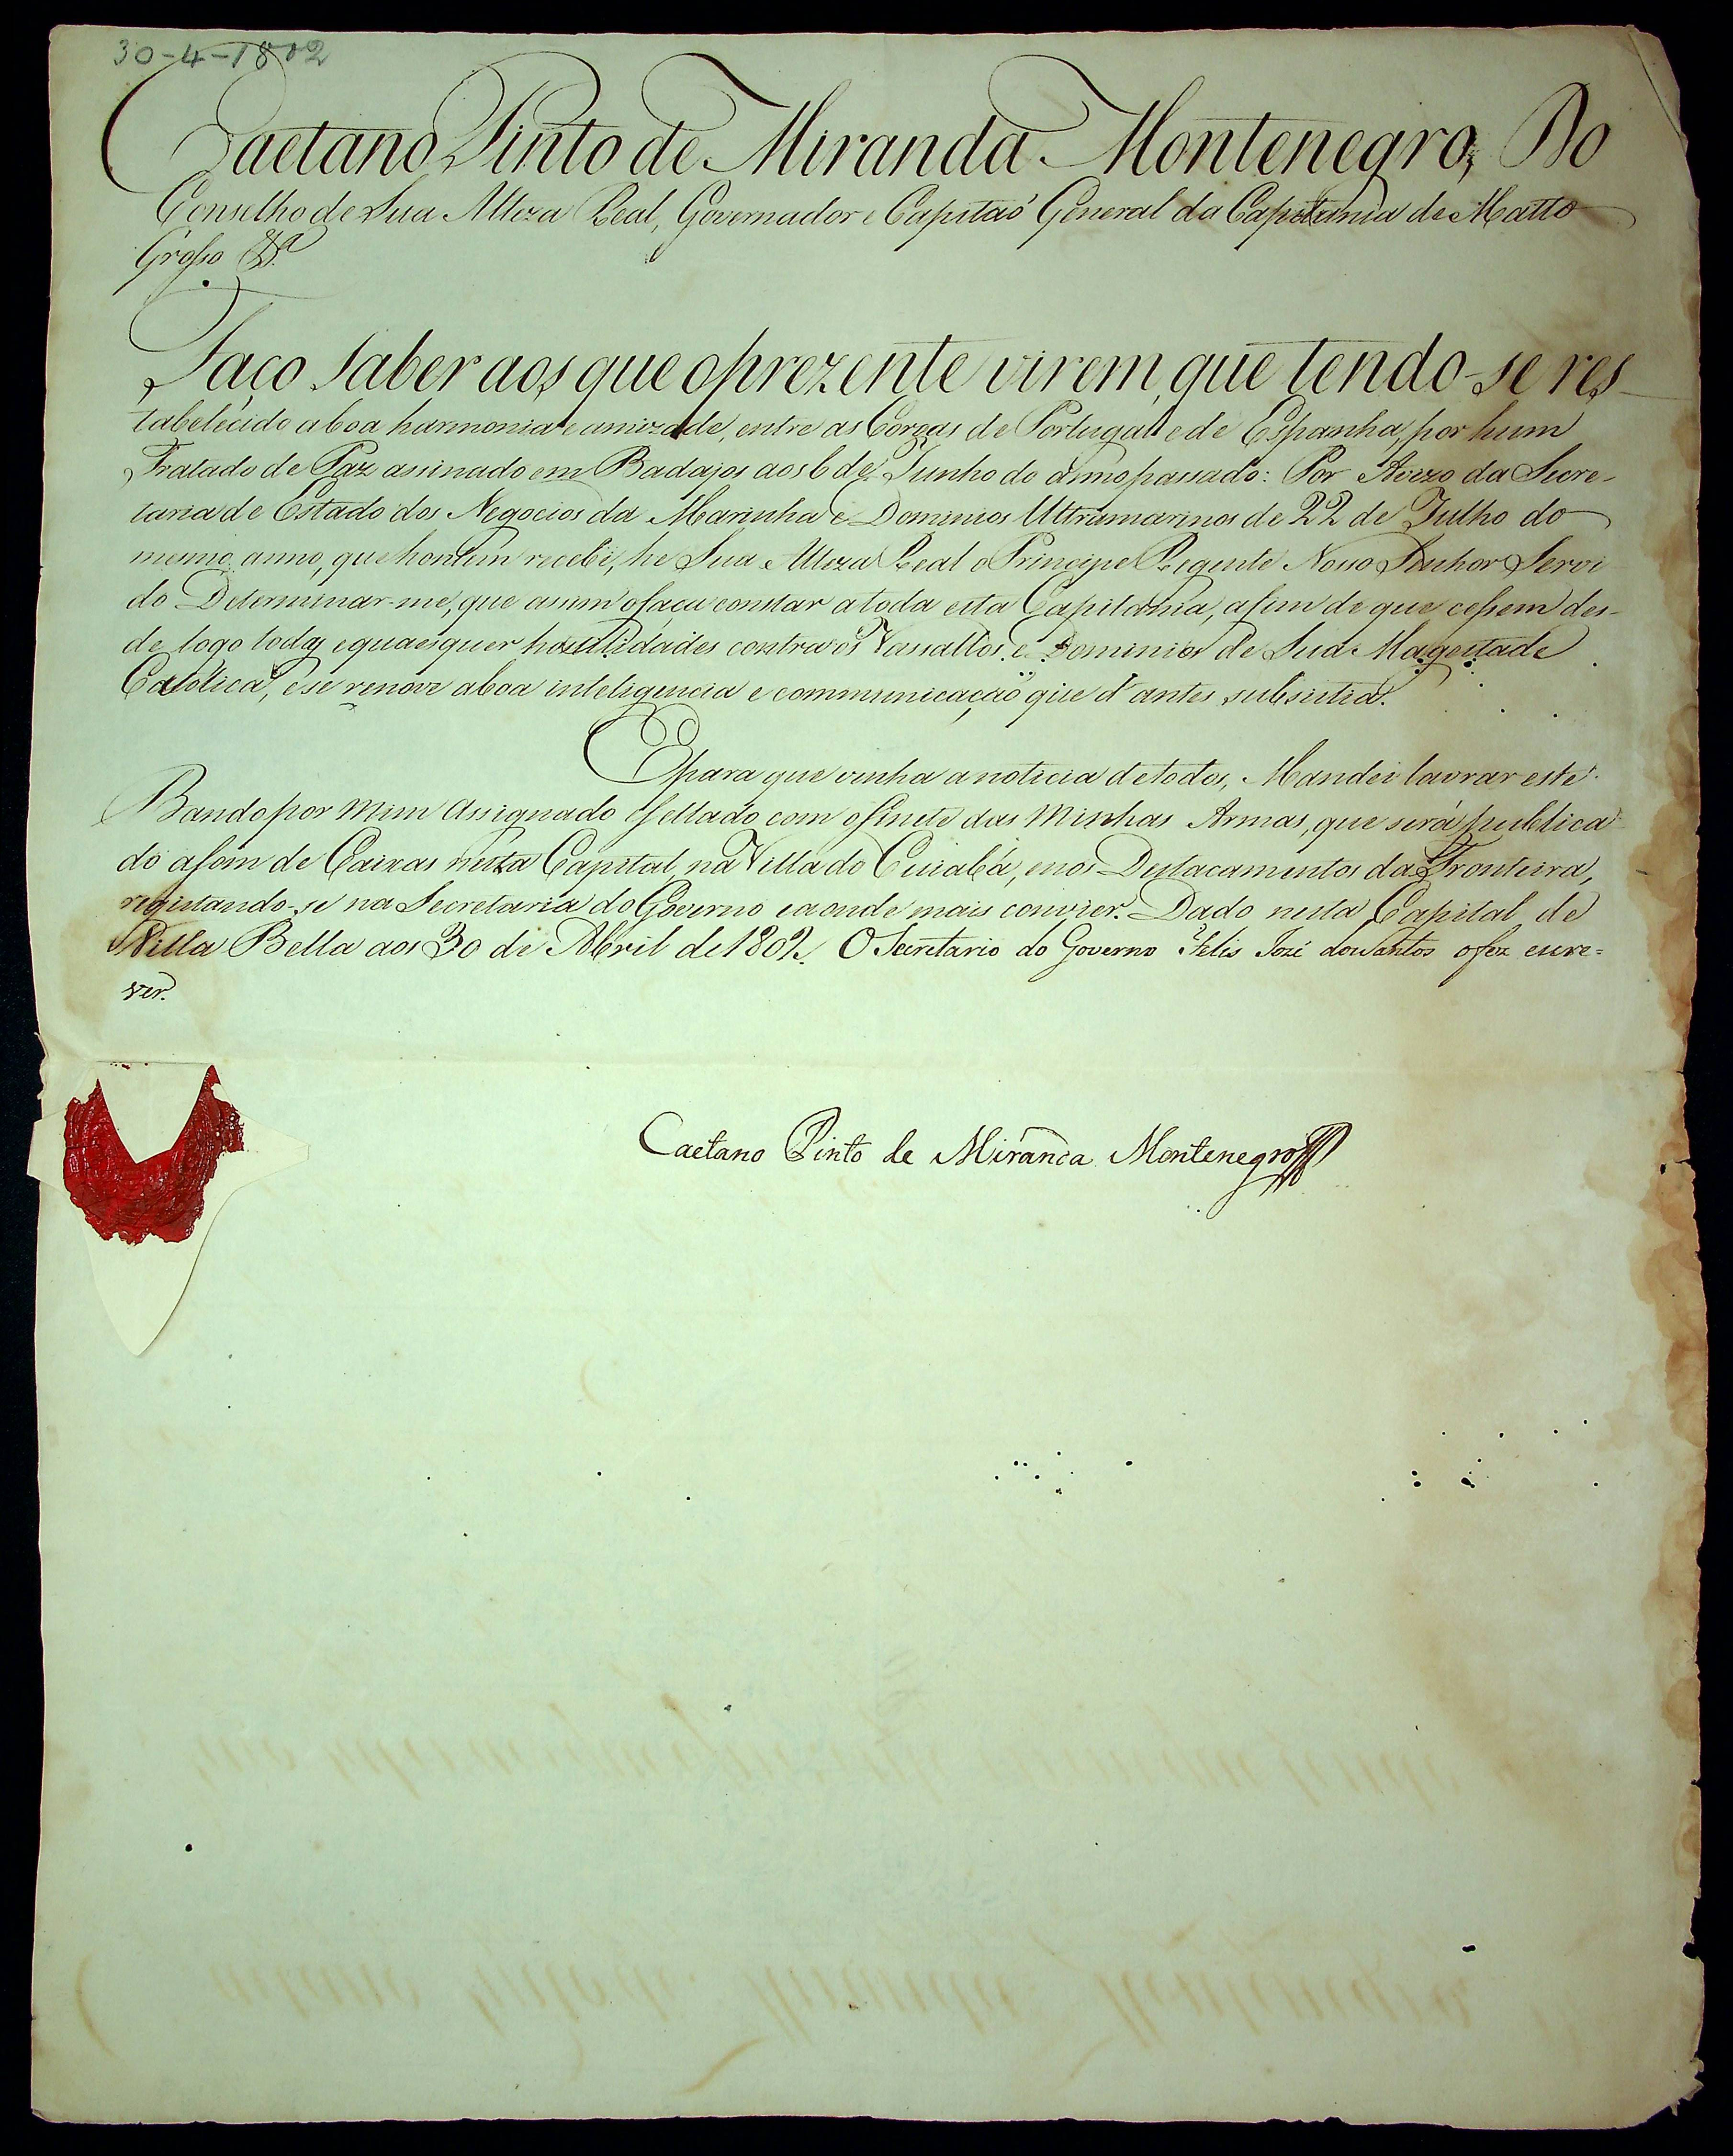 30-4-1802
Caetano Pinto de Miranda Montenegro, Do
Conselho de Sua Alteza Real, Governador e Capitaõ General da Capitania de Matto
Grosso &ª
Faço saber aos que o prezente virem, que tendo-se res-
tabelecido a boa harmonia e amizade, entre as Coroas de Portugal e de Espanha, por hum
Tratado de Paz assinado em Badajos aos 6 de Junho do anno passado: Por Avizo da Secre-
taria de Estado dos Negocios da Marinha e Dominios Ultramarinos de 22 de Julho do
mesmo anno, que hontem recebi, he Sua Alteza Real o Principe Regente Nosso Senhor Servi
do Determinar-me, que assim o faça constar a toda esta Capitania, afim de que cessem des-
de logo todas e quaesquer hostilidades contra os Vassallos, e Dominios de Sua Magestade
Catolica, e se renove a boa inteligencia e communicaçaõ que d'antes subsistia.
E para que venha a noticia de todos, Mandei lavrar este
Bando por mim Assignado e sellado com o Sinete das Minhas Armas, que será publica
do a som de Caixas nesta Capital, na Villa do Cuiabá, e nos Destacamentos da Fronteira,
registando-se na Secretaria do Governo e aonde mais convier. Dado nesta Capital de
Villa Bella aos 30 de Abril de 1802. O Secretario do Governo Felis Jozé dos Santos o fez escre=
ver.
Caetano Pinto de Miranda Montenegro